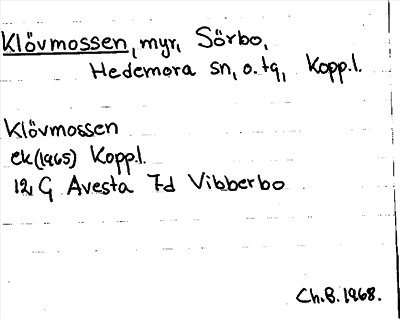 Klövmossen, myr, Sörbo,
Hedemora sn, o. tg, Kopp.l.
Klövmossen
ek (1965) Kopp.l.
12 G Avesta 7d Vibberbo
Ch.B. 1968.